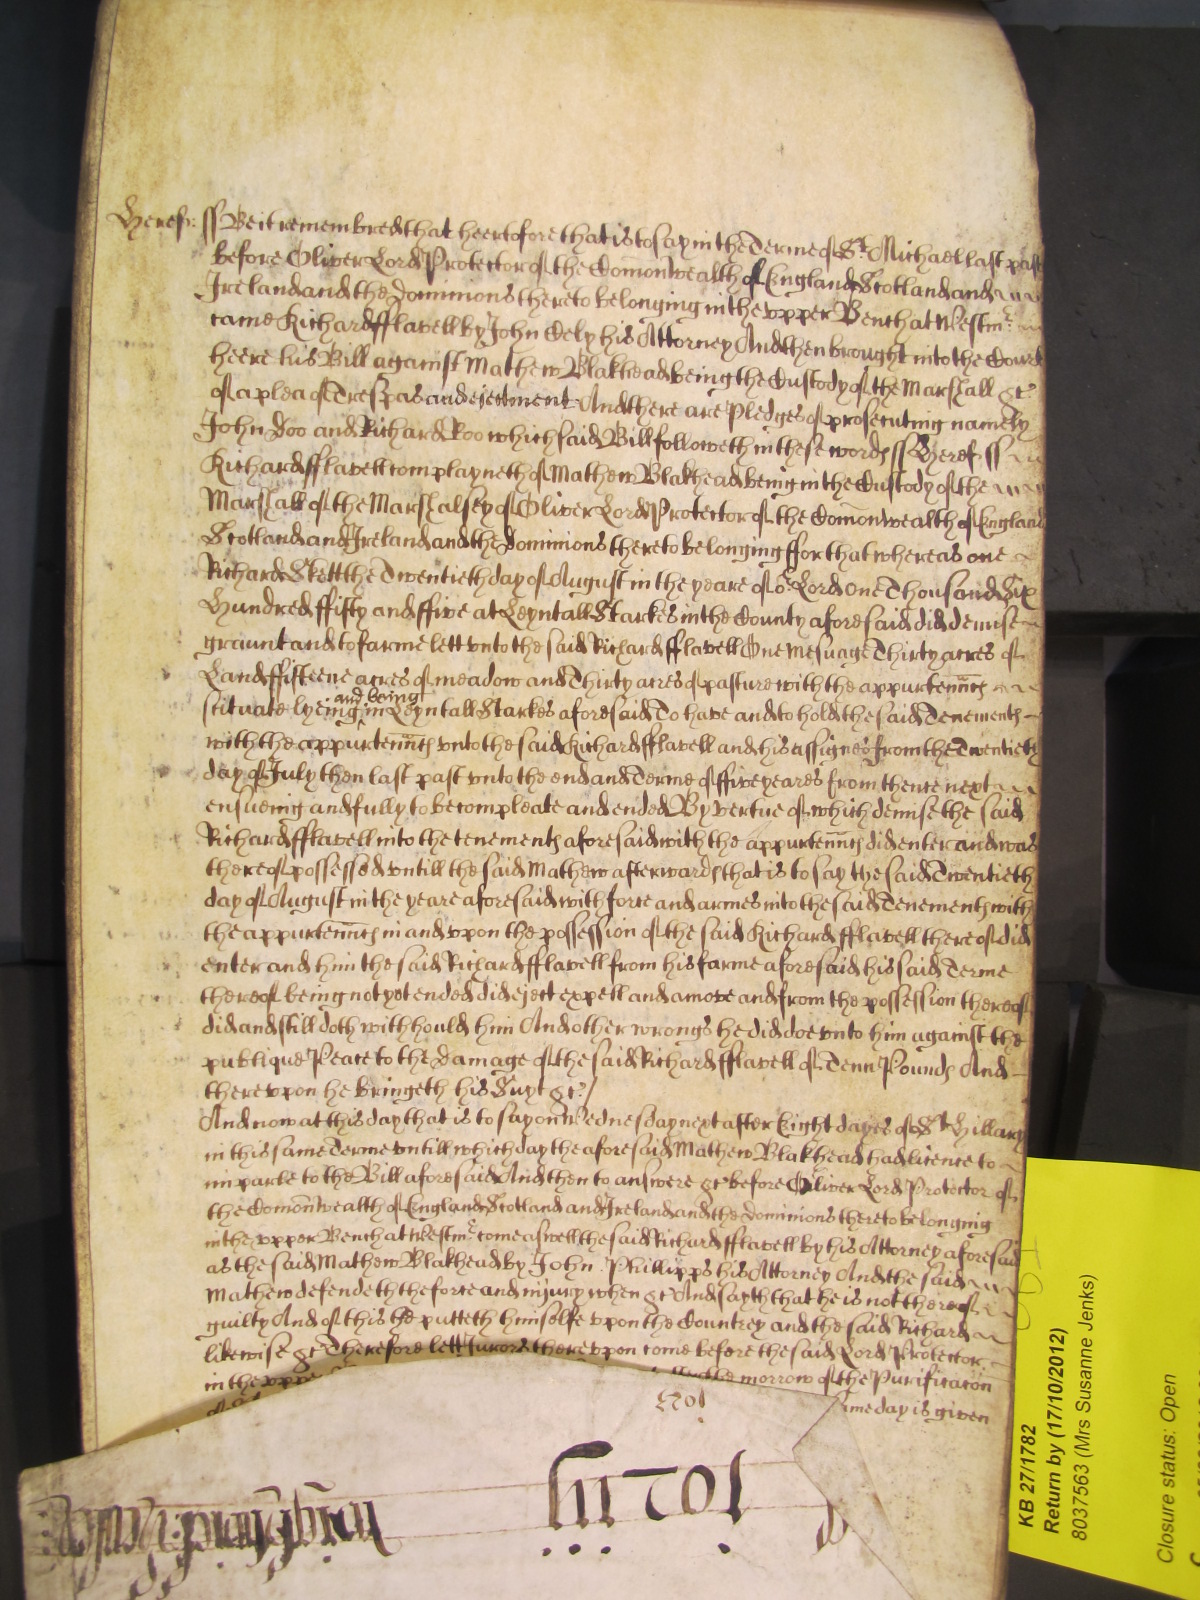 Heref: ss Be it remembred that heertofore that is to say in the Terme of St. Michael last past
before Oliver Lord Protector of the Comonwealth of England Scotland and
Ireland and the Dominions thereto belonging in the vpper Bench at Westmr.
came Richard fflavell by John Cely his Attorney And then brought into the Court
heere his Bill against Mathew Blakhead being the Custody of the Marshall &c
of a plea of Trespas and ejectment And there are Pledges of prosecuting namely
John Doo and Richard Roo which said Bill followeth in these words ss Heref. ss
Richard fflavell complayneth of Mathew Blakhead being in the Custody of the
Marshall of the Marshalsey of Oliver Lord Protector of the Comonwealth of England
Scotland and Ireland and the Dominions thereto belonging ffor that whereas one
Richard Skett the Twentieth day of August in the yeare of or Lord one Thousand Six
Hundred ffifty and ffive at Leyntall Starkes in the County aforesaid did demise
graunt and to farme lett vnto the said Richard fflavell One mesuage Thirty acres of
Land ffifteene acres of meadow and Thirty acres of pasture with the appurtennts
and being
scituate lyeing in Leyntall Starkes aforesaid To have and to hold the said Tenements
with the appurtennts vnto the said Richard fflavell and his assignes from the Twentieth
day of July then last past vnto the end and Terme of ffive yeares from thence next
ensueing and fully to be compleate and ended By vertue of which demise the said
Richard fflavell into the tenements aforesaid with the appurtennts did enter and was
thereof possessed vntill the said Mathew afterwards that is to say the said Twentieth
day of August in the yeare aforesaid with force and armes into the said Tenements with
the appurtennts in and vpon the possession of the said Richard fflavell thereof did
enter and him the said Richard fflavell from his farme aforesaid his said Terme
thereof being not yet ended did eject expell and amove and from the possession thereof
did and still doth withhould him And other wrongs he did doe vnto him against the
publique Peace to the Damage of the said Richard fflavell of Tenn Pounds And
therevpon he bringeth his Suyt &c /
And now at this day that is to say on Wednesday next after Eight dayes of St Hillary
in this same Terme vntill which day the aforesaid Mathew Blakhead had licence to
imparle to the Bill aforesaid And then to answere &c before Oliver Lord Protector of
the Comonwealth of England Scotland and Ireland and the Dominions thereto belonging
in the vpper Bench at Westmr. come aswell the said Richard fflavell by his Attorney aforesaid
as the said Mathew Blakhead by John Phillipps his Attorney And the said
Mathew defendeth the force and injury when &c And sayth that he is not thereof
guilty And of this he putteth himselfe vpon the Countrey and the said Richard
likewise &c Therefore lett Jurors therevpon come before the said Lord Protector
in the vppe the morrow of the Purificacon
me day is given
KB 27/1782
Return by (17/10/2012)
8037563 (Mrs Susanne Jenks)
Closure status: Open